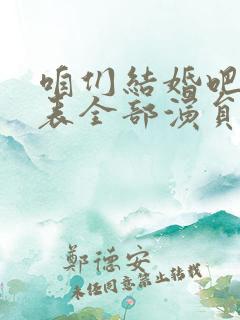 咱们結婚吧
表全部演員
鄭德安
未经同意禁止转载